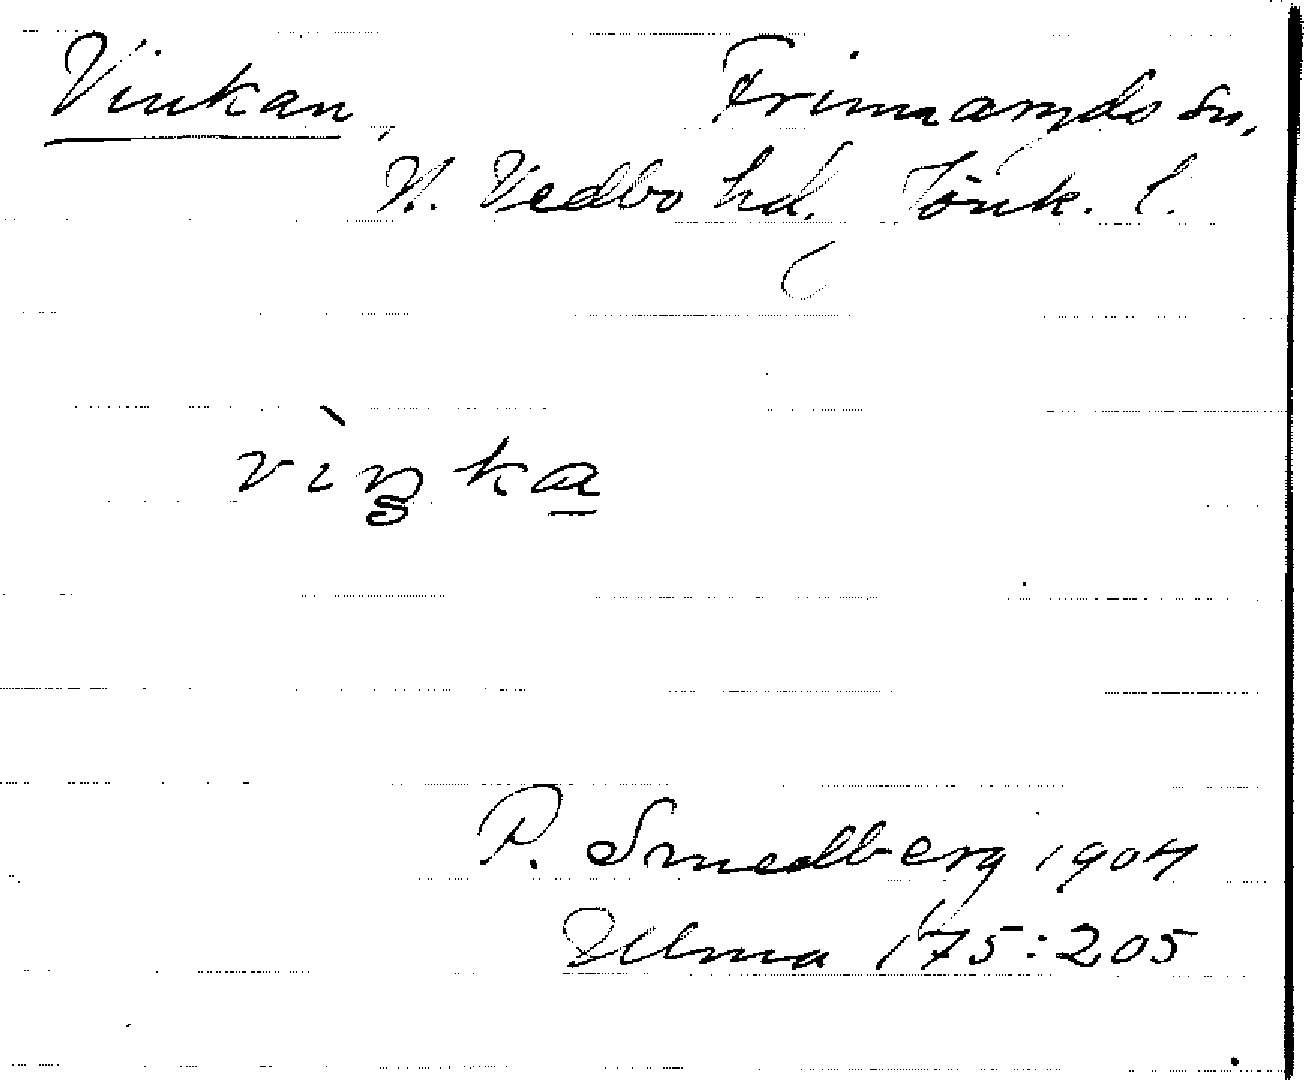 Vinkan, Frinnaryds sn,
N. Vedbo hd. Jönk. l.
vìŋka̲
P. Smedberg 1904
Ulma 175:205